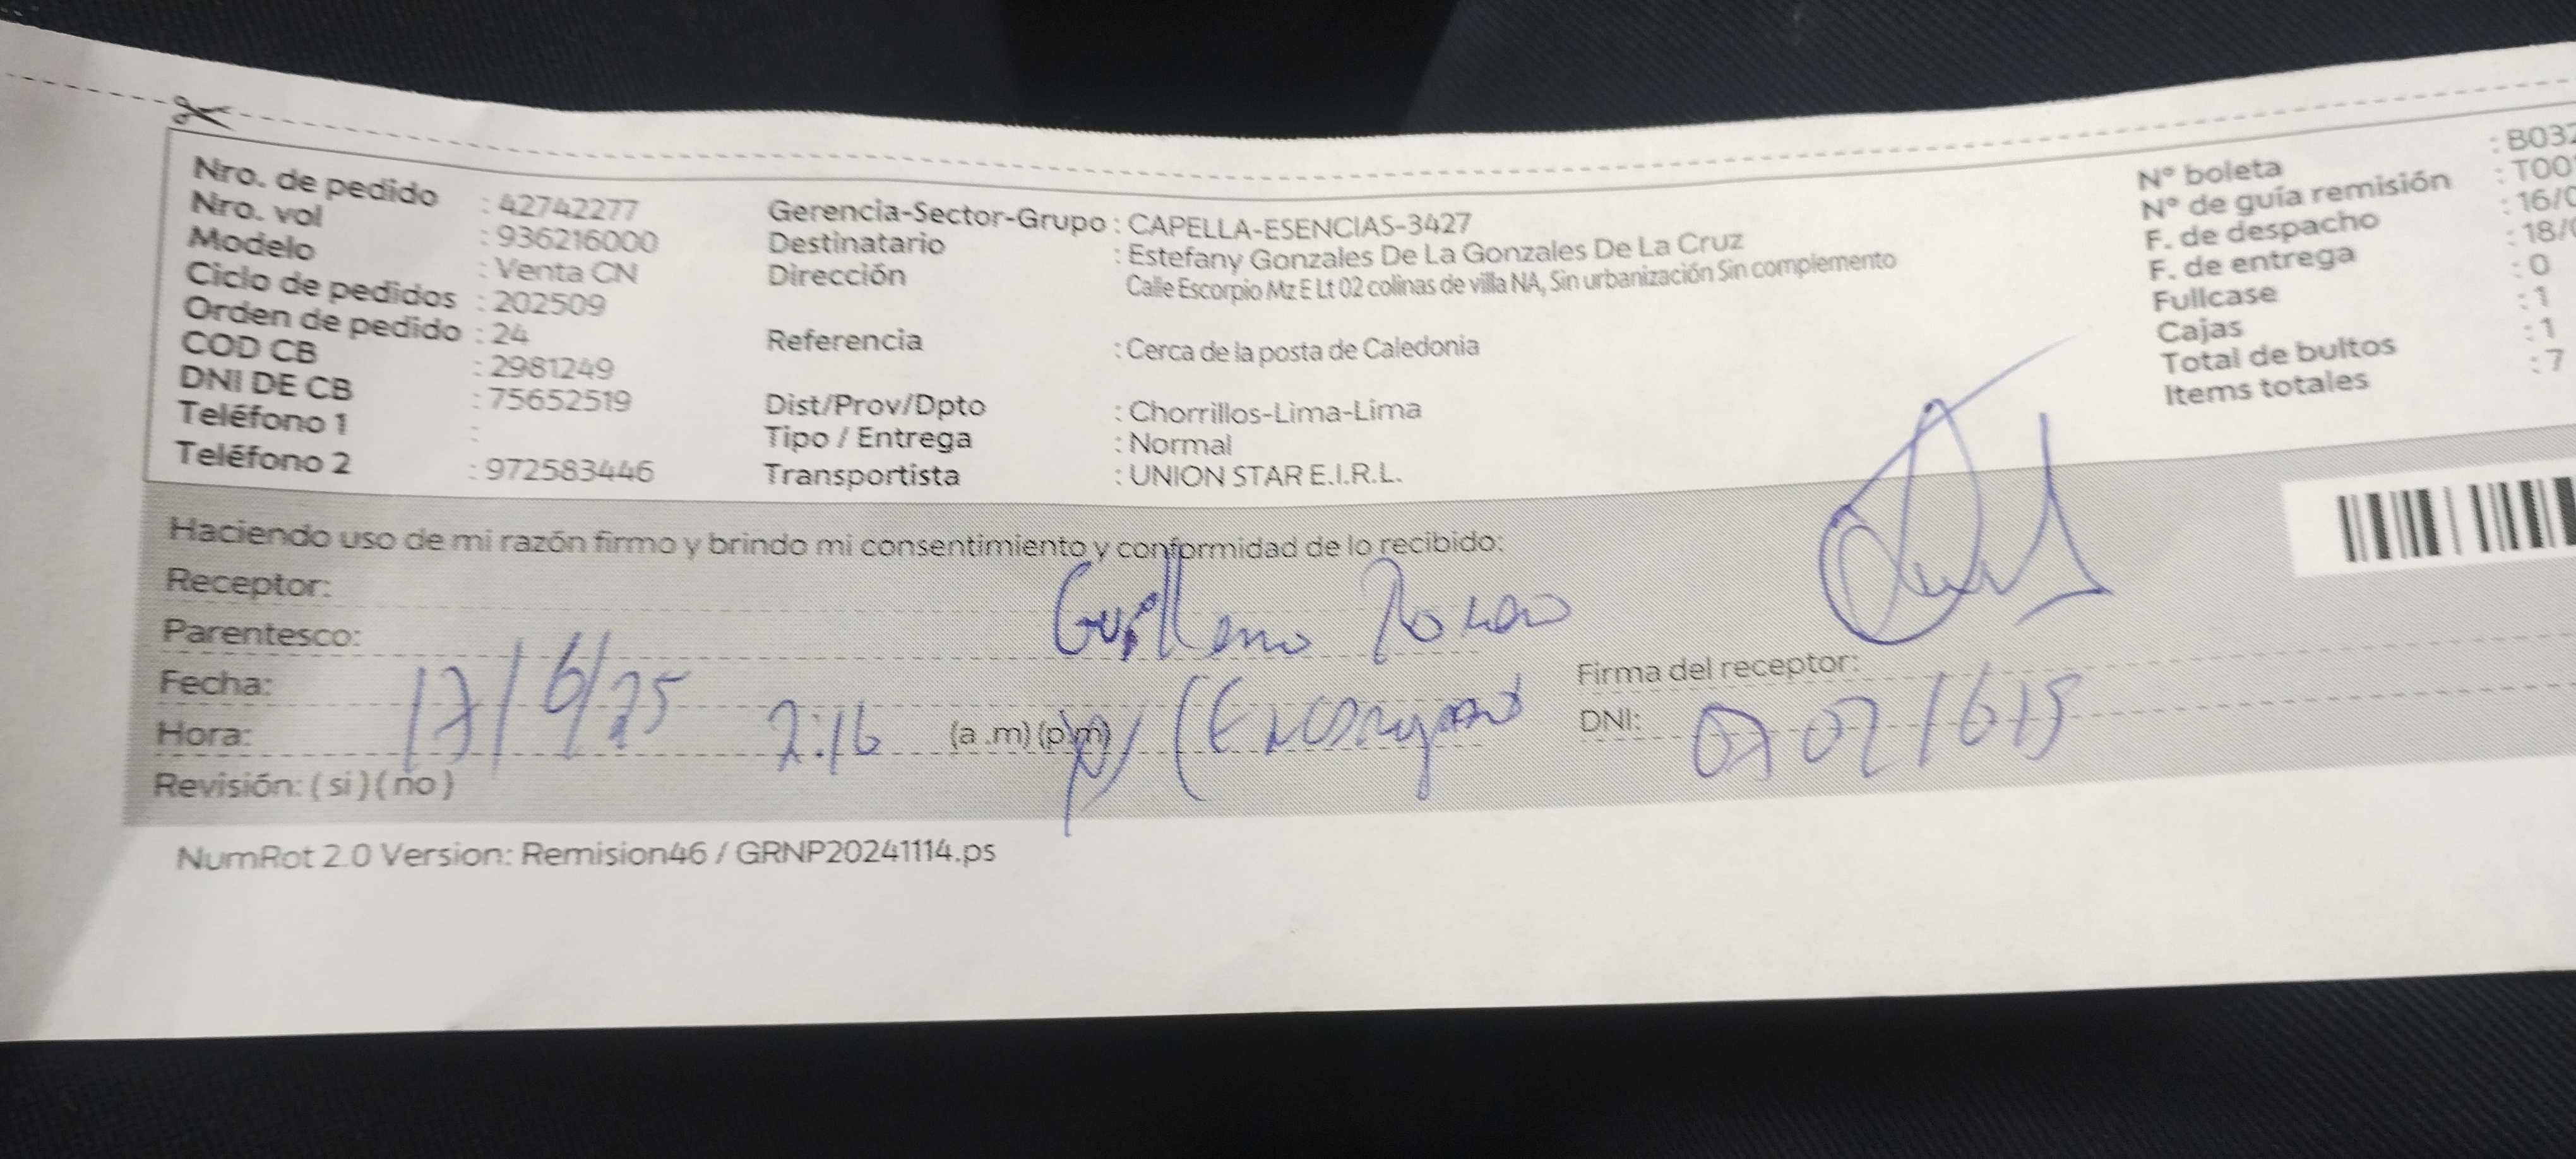 Nro. de pedido : 42742277
Nro. vol : 936216000
Modelo : Venta CN
Ciclo de pedidos : 202509
Orden de pedido : 24
COD CB : 2981249
DNI DE CB : 75652519
Teléfono 1 :
Teléfono 2 : 972583446
Gerencia-Sector-Grupo : CAPELLA-ESENCIAS-3427
Destinatario : Estefany Gonzales De La Gonzales De La Cruz
Dirección Calle Escorpio Mz E Lt 02 colinas de villa NA, Sin urbanización Sin complemento
Referencia : Cerca de la posta de Caledonia
Dist/Prov/Dpto : Chorrillos-Lima-Lima
Tipo / Entrega : Normal
Transportista : UNION STAR E.I.R.L.
N° boleta : B032
N° de guía remisión : T00
F. de despacho : 16/0
F. de entrega : 18/0
Fullcase : 0
Cajas : 1
Total de bultos : 1
Items totales : 7
Haciendo uso de mi razón firmo y brindo mi consentimiento y conformidad de lo recibido:
Receptor: Guillermo
Parentesco:
Fecha: 17/6/25
Hora: 2:16 (a .m) (p.m)
Revisión: ( si ) ( no )
Firma del receptor:
DNI:
NumRot 2.0 Version: Remision46 / GRNP20241114.ps